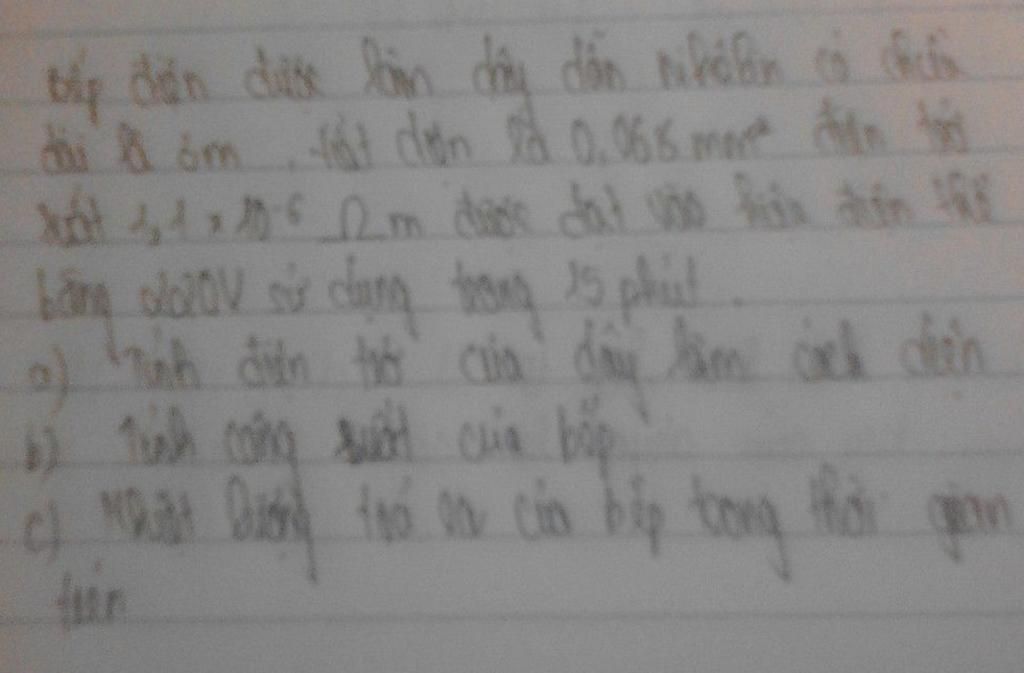 bếp điện được làm dây dẫn nikêlin có chiều
dài là 6m, tiết diện là 0,068 mm² điện trở
suất 1,1 x 10⁻⁶ Ωm được đặt vào hiệu điện thế
bằng 220V sử dụng trong 15 phút.
a) Tính điện trở của dây làm
b) Tính công suất của bếp
c) Nhiệt lượng toả ra của bếp trong thời gian
trên